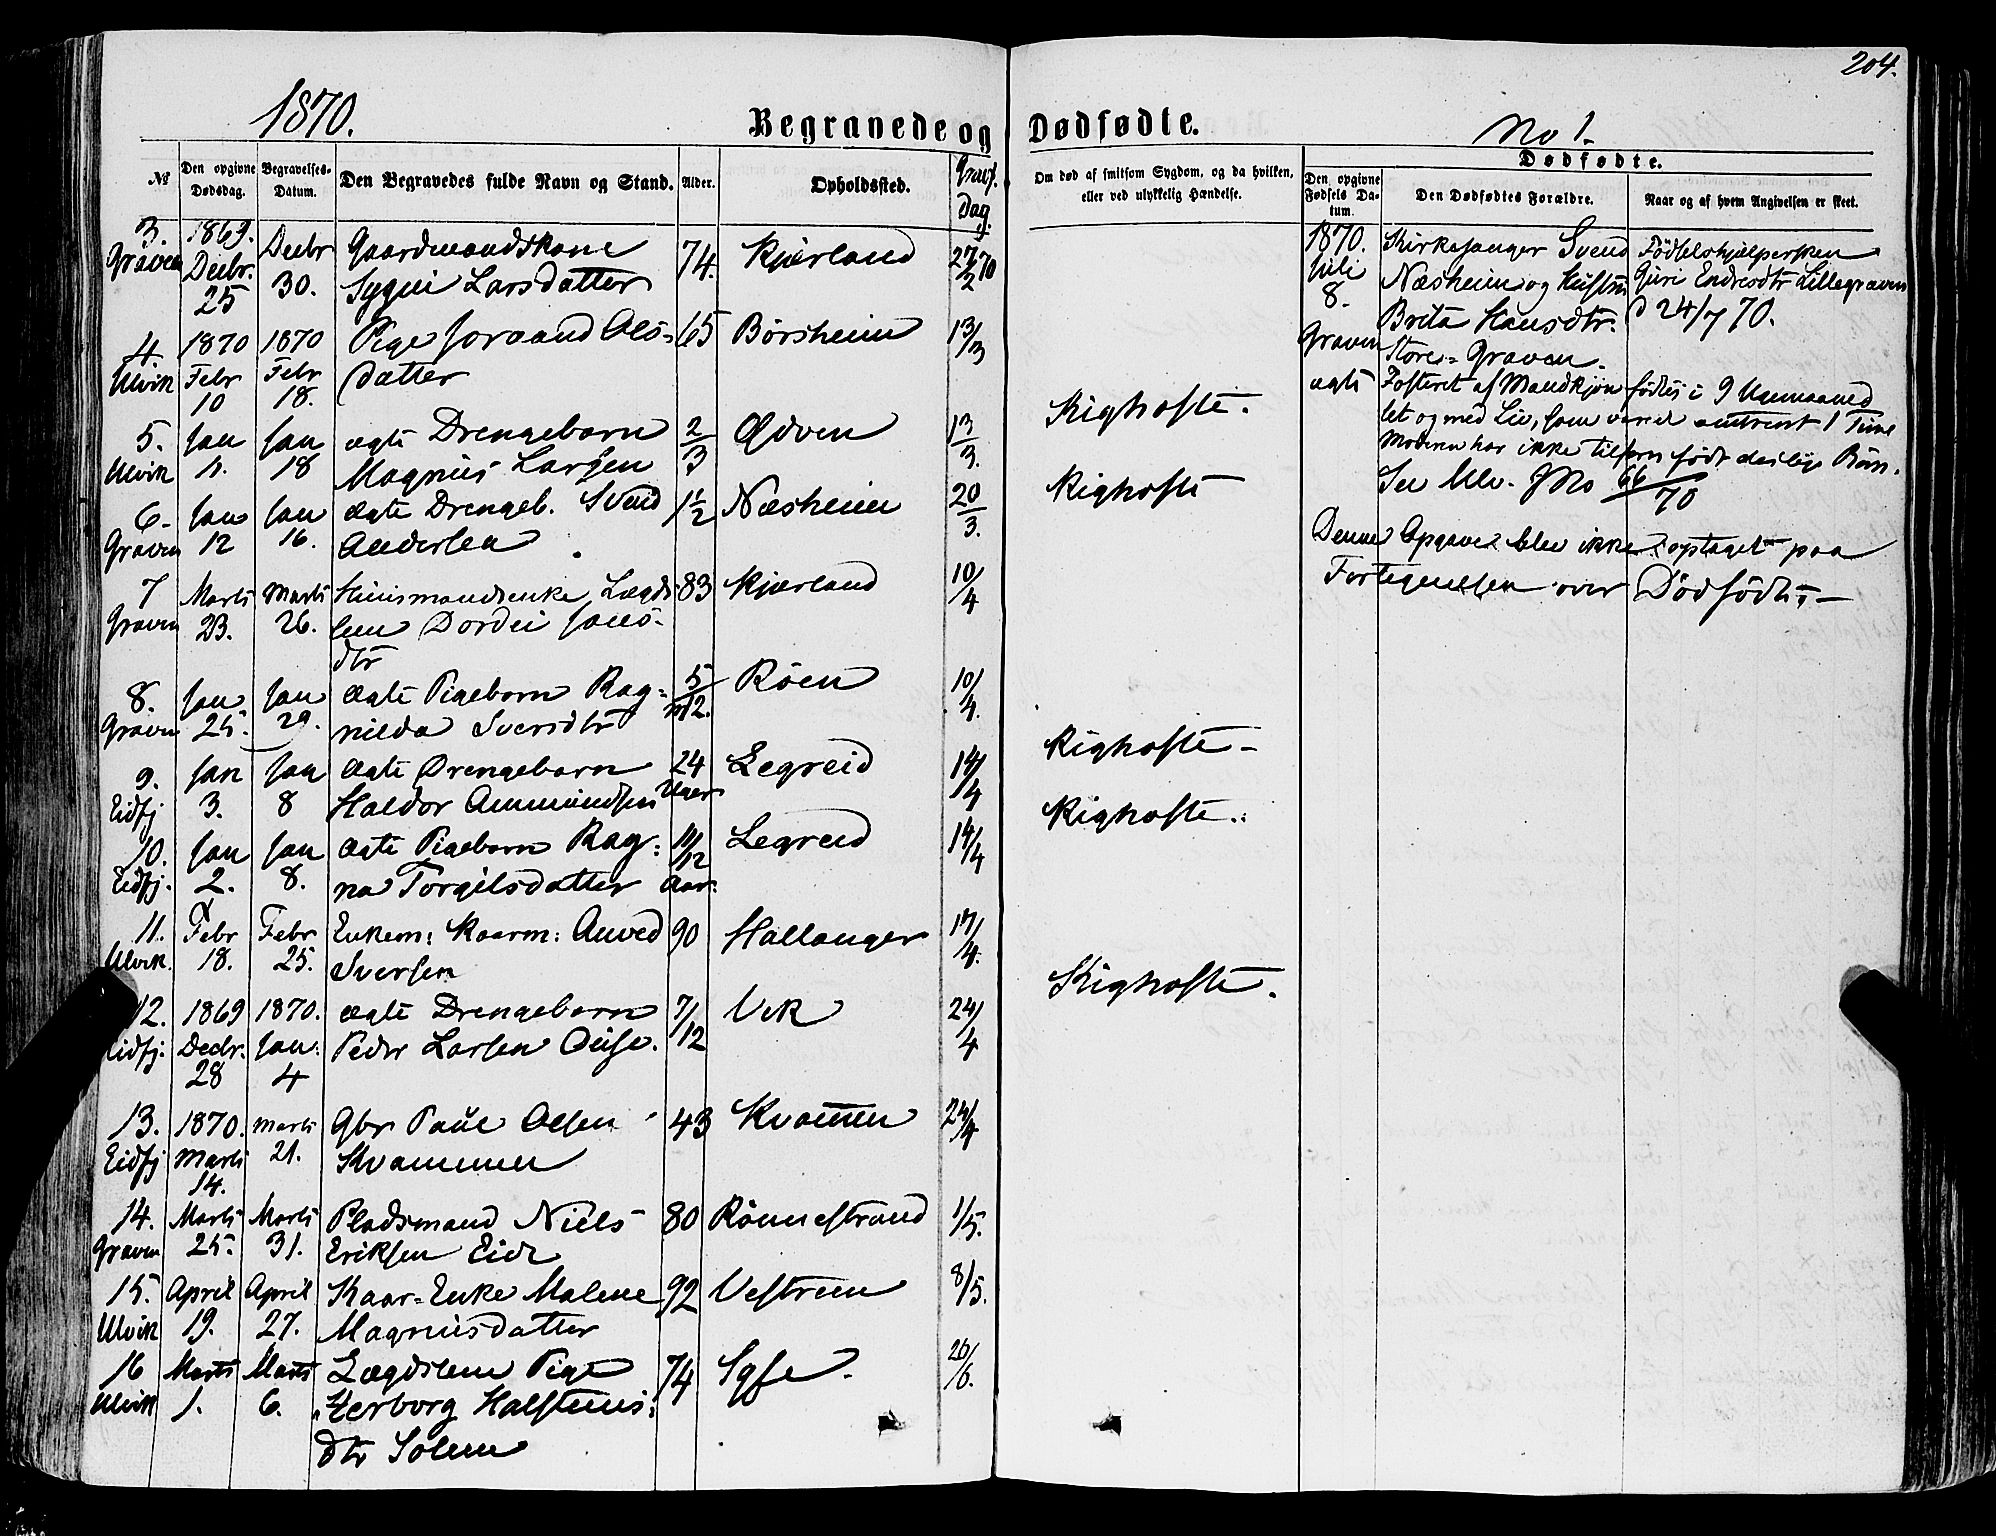 204.
1870.
Begravede og Dødfødte.
No 1.
№
Den opgivne Dødsdag.
Begravelses-Datum.
Den Begravedes fulde Navn og Stand.
Alder.
Opholdssted.
Dag
Om død af smitsom Sygdom, og da hvilken, eller ved ulykkelig Hændelse.
Dødfødte.
Den opgivne Fødsels Datum.
Den Dødfødtes Forældre.
Naar og af hvem Angivelsen er skeet.
3. 1869. Decbr Gaardmandskone 74. Kjærland 27/2 70
Graven Decbr. 30. Sygni Larsdatter
25
4. 1870 1870 Pige Joraand Ols- 65 Børsheim 13/3
Ulvik Febr Febr datter
10 18.
5. Jan Jan ægte Drengebarn 2/3 Ødven 13/3. Kighoste.
Ulvik 11. 18 Magnus Larsen
6- Jan Jan ægte Drengeb. Svend 1 1/2 Næsheim 20/3. Kighoste
Graven 12 16. Andersen
7 Marts Marts Huusmandsenke Lægds 83 Kjærland 10/4
Graven 23. 26. lem Dordei Jons-
dtr
8. Jan Jan ægte Pigebarn Rag- 5/12. Røen 10/4.
Graven 25. 29. nilda Sversdtr
9. Jan Jan ægte Drengebarn 24 Legreid 14/4 Kighoste-
Eidfj 3. 8 Haldor Ammundsen Uger
10. Jan Jan ægte Pigebarn Rag- 11/12 Legreid 14/4 Kighoste.
Eidfj. 2. 8. na Torgilsdatter Aar.
11. Febr Febr Enkem: Kaarm: Anved 90 Hallanger 17/4.
Ulvik. 18. 25. Sversen
12. 1869 1870. ægte Drengebarn 7/12 Vik 24/4 Kighoste.
Eidfj. Decbr. Jan. Peder Larsen
28 4
13. 1870. Marts Gbr Paul Olsen 43 Kvammen 24/4
Eidfj Marts 21. Kvammen
14.
14. Marts Marts Pladsmand Niels 80 Rønnestrand 1/5.
Graven 25. 31. Eriksen Eide
15. April April Kaar-Enke Malene 92 Vestrem 8/5.
Ulvik 19. 27. Magnusdatter
16 Marts Marts Lægdslem Pige 74 Syse. 26/6.
Ulvik 1. 6. Herborg Halsteins-
dtr Solem
1870. Kirkesanger Svend Fødselshjælpersken
Juli Næsheim og Hustru Guri Endresdtr Lillegraven
8. Brita Hansdtr. d 24/7 70.
Graven Store-Graven.
ægte Fosteret af Mandkjøn fødtes i 9 Maaned
let og med Liv, som varede omtrent 1 Time
Moderen har ikke tilforn født deslige Børn.
Se Min. J No 66/70
Denne Opgave blev ikke optaget paa
Fortegnelsen over Dødfødte.